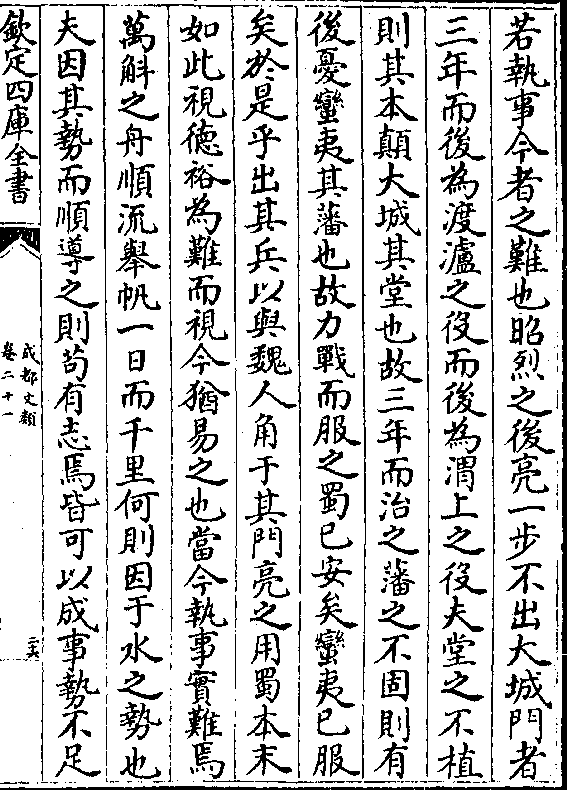 若執事今者之難也昭烈之後亮一步不出大城門者
三年而後為渡瀘之役而後為渭上之役夫堂之不植
則其本顛大城其堂也故三年而治之藩之不固則有
後憂蠻夷其藩也故力戰而服之蜀已安矣蠻夷已服
矣於是乎出其兵以與魏人角于其門亮之用蜀本末
如此視德裕為難而視今猶易之也當今執事實難焉
萬斛之舟順流舉帆一日而千里何則因于水之勢也
夫因其勢而順導之則苟有志焉皆可以成事勢不足
欽定四庫全書
成都文類
卷二十一
二六